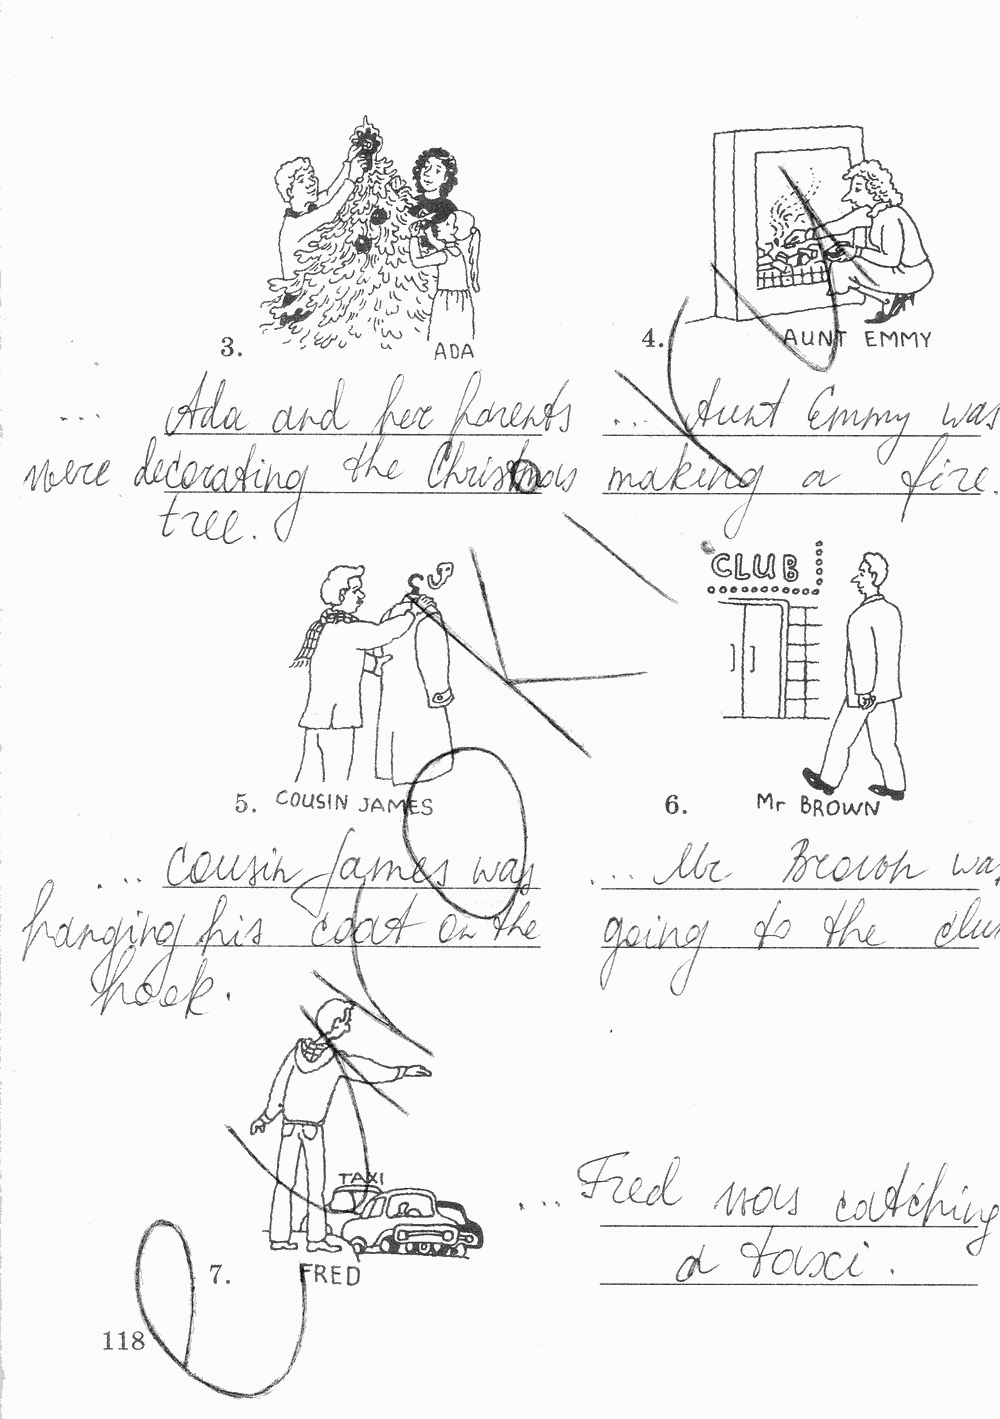 3. ADA
4. AUNT EMMY
... Ada and her parents
were decorating the Christmas
tree.
... Aunt Emmy was
making a fire.
CLUB
5. COUSIN JAMES
6. Mr BROWN
... Cousin James was
hanging his coat on the
hook.
... Mr Brown was
going to the club
TAXI
7. FRED
... Fred was catching
a taxi.
118